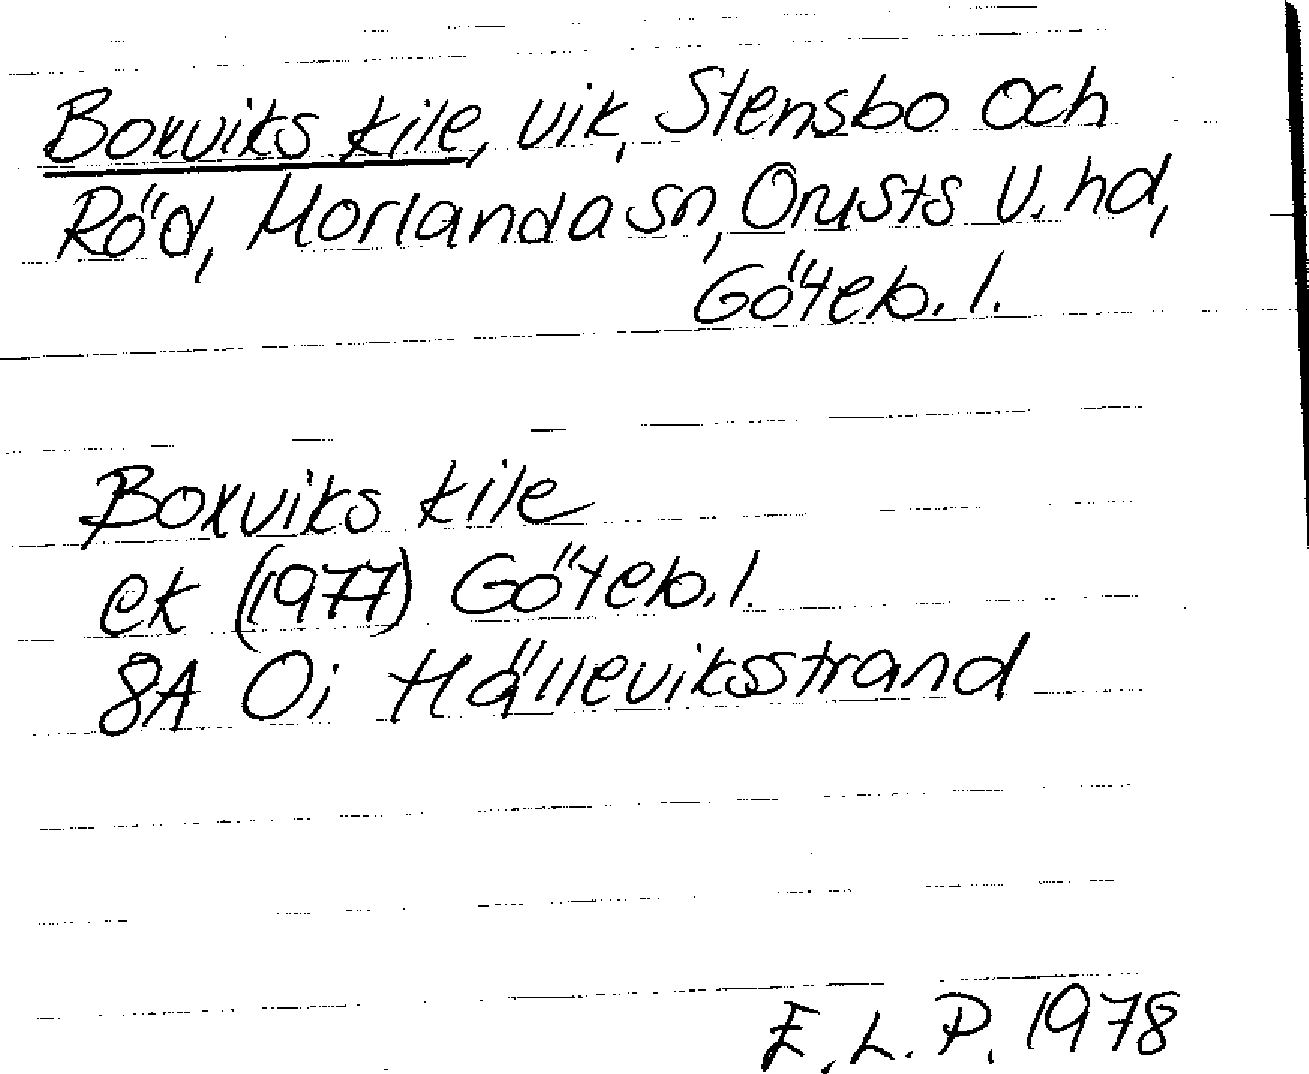 Boxviks kile, vik, Stensbo och
Röd, Morlanda sn, Orusts v. hd,
Göteb. l.
Boxviks kile
ek (1977) Göteb. l.
8A 0i Hälleviksstrand
E. L. P. 1978